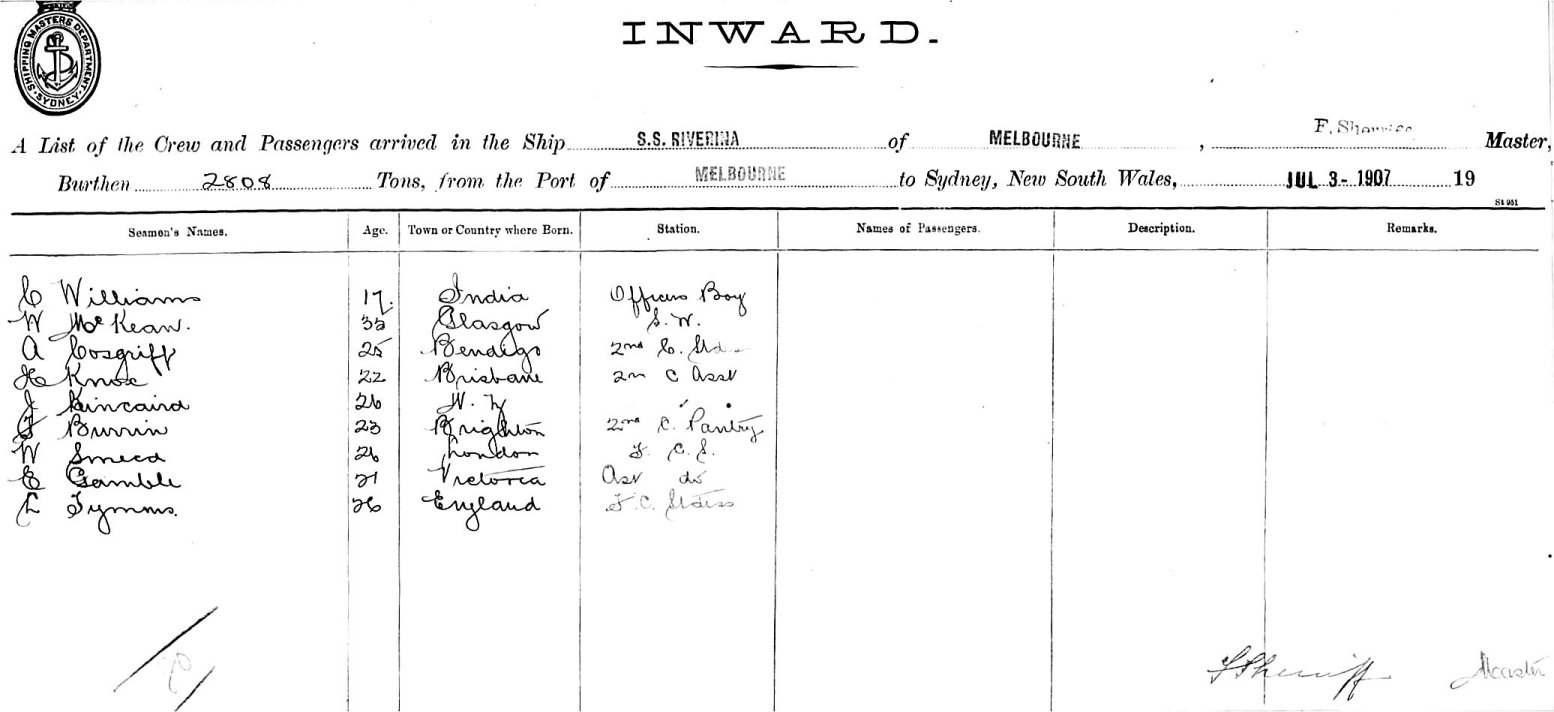 SHIPPING MASTERS DEPARTMENT. SYDNEY.
INWARD.
A List of the Crew and Passengers arrived in the Ship S.S. RIVERINA of MELBOURNE, F. Master,
Burthen 2808 Tons, from the Port of MELBOURNE to Sydney, New South Wales, JUL 3- 1907 19
St 951
Seamen's Names. Age. Town or Country where Born. Station. Names of Passengers. Description. Remarks.
C Williams 17. India Officers Boy
W McKean. 35 Glasgow S.W.
A Cosgriff 25 Bendigo 2nd C. Std
H Knox 22 Brisbane 2n C Asst
J Kincaird 26 N.Z
F Burrin 23 Brighton 2nd C. Pantry
W Smeed 26 London F. C. S.
E Gamble 21 Victoria Ast do
L Tymms. 26 England F.C. Staiss
F Sherriff Master